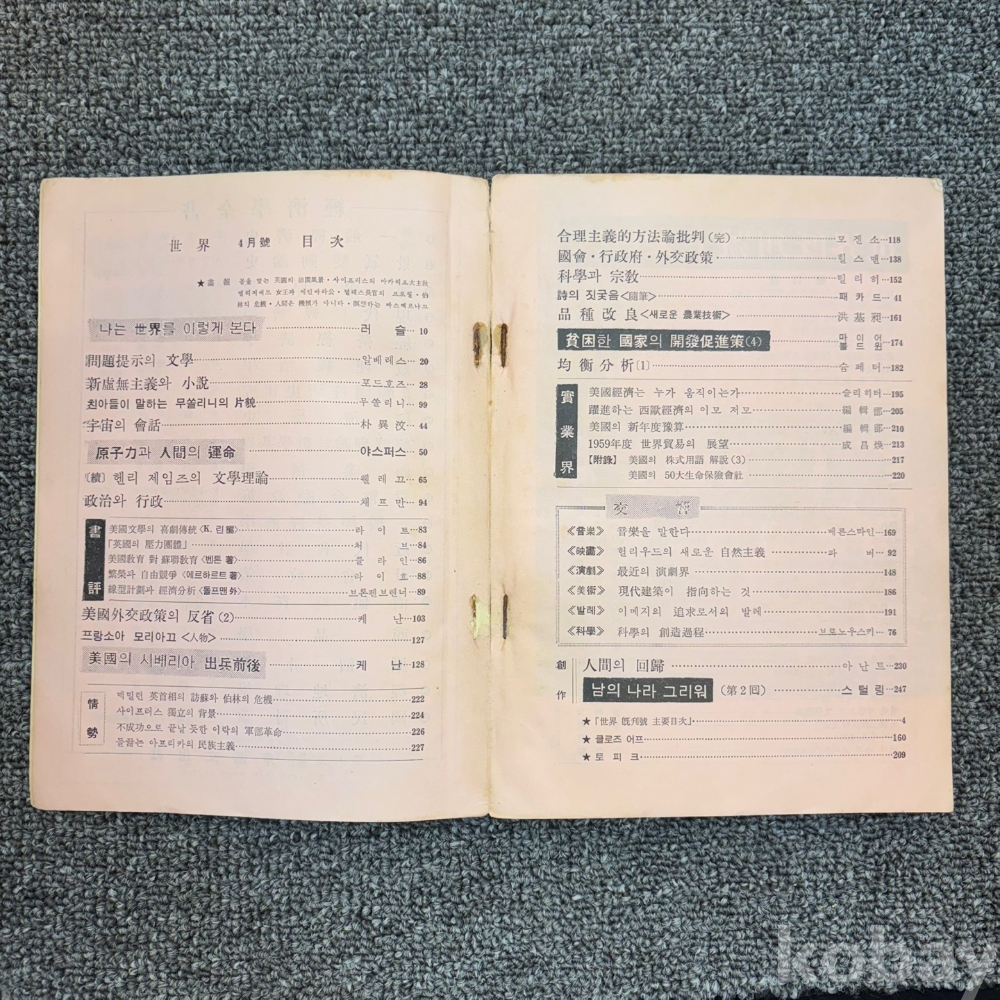 世界 4月號 目次
★畫報 봄을 맞는 英國의 · 사이프러스의 마카리오大主敎
엘리자베드 女王과 · 덜레스長官의 프로필 · 伯
林의 危機 · 人間은 機械가 아니다 ·
나는 世界를 이렇게 본다 러슬 10
問題提示의 文學 알베레스 20
新虛無主義와 小說 포드호즈 28
친아들이 말하는 무쏠리니의 片貌 무쏠리니 99
宇宙의 會話 朴異汶 44
原子力과 人間의 運命 야스퍼스 50
〔續〕 헨리 제임즈의 文學理論 웰레끄 65
政治와 行政 채프만 94
書評
美國文學의 喜劇傳統〈K. 린編〉 라이트 83
「英國의 壓力團體」 처브 84
美國敎育 對 蘇聯敎育〈벤튼 著〉 클라인 86
繁榮과 自由競爭〈에르하르트 著〉 라이흐 88
線型計劃과 經濟分析〈돌프맨 外〉 브론펜브렌너 89
美國外交政策의 反省 (2) 케난 103
프랑소아 모리아끄〈人物〉 127
美國의 시베리아 出兵前後 케난 128
情勢
맥밀런 英首相의 訪蘇와 伯林의 危機 222
사이프러스 獨立의 背景 224
不成功으로 끝날 듯한 이락의 軍部革命 226
들끓는 아프리카의 民族主義 227
合理主義的方法論批判(完) 모겐소 118
國會·行政府·外交政策 힐스맨 138
科學과 宗敎 틸리히 152
詩의 짓궂음〈隨筆〉 패카드 41
品種改良〈새로운 農業技術〉 洪基昶 161
貧困한 國家의 開發促進策(4) 마이어 볼드윈 174
均衡分析〔1〕 슘페터 182
實業界
美國經濟는 누가 움직이는가 슐리히터 195
躍進하는 西歐經濟의 이모 저모 編輯部 205
美國의 新年度豫算 編輯部 210
1959年度 世界貿易의 展望 成昌煥 213
【附錄】 美國의 株式用語 解說(3) 217
美國의 50大生命保險會社 220
交響
《音樂》 音樂을 말한다 번스타인 169
《映畵》 헐리우드의 새로운 自然主義 파버 92
《演劇》 最近의 演劇界 148
《美術》 現代建築이 指向하는 것 186
《발레》 이메지의 追求로서의 발레 191
《科學》 科學의 創造過程 브로노우스키 76
創作
人間의 回歸 아난트 230
남의 나라 그리워 (第2回) 스털링 247
★「世界 旣刊號 主要目次」 4
★ 클로즈 어프 160
★ 토피크 209
kobay